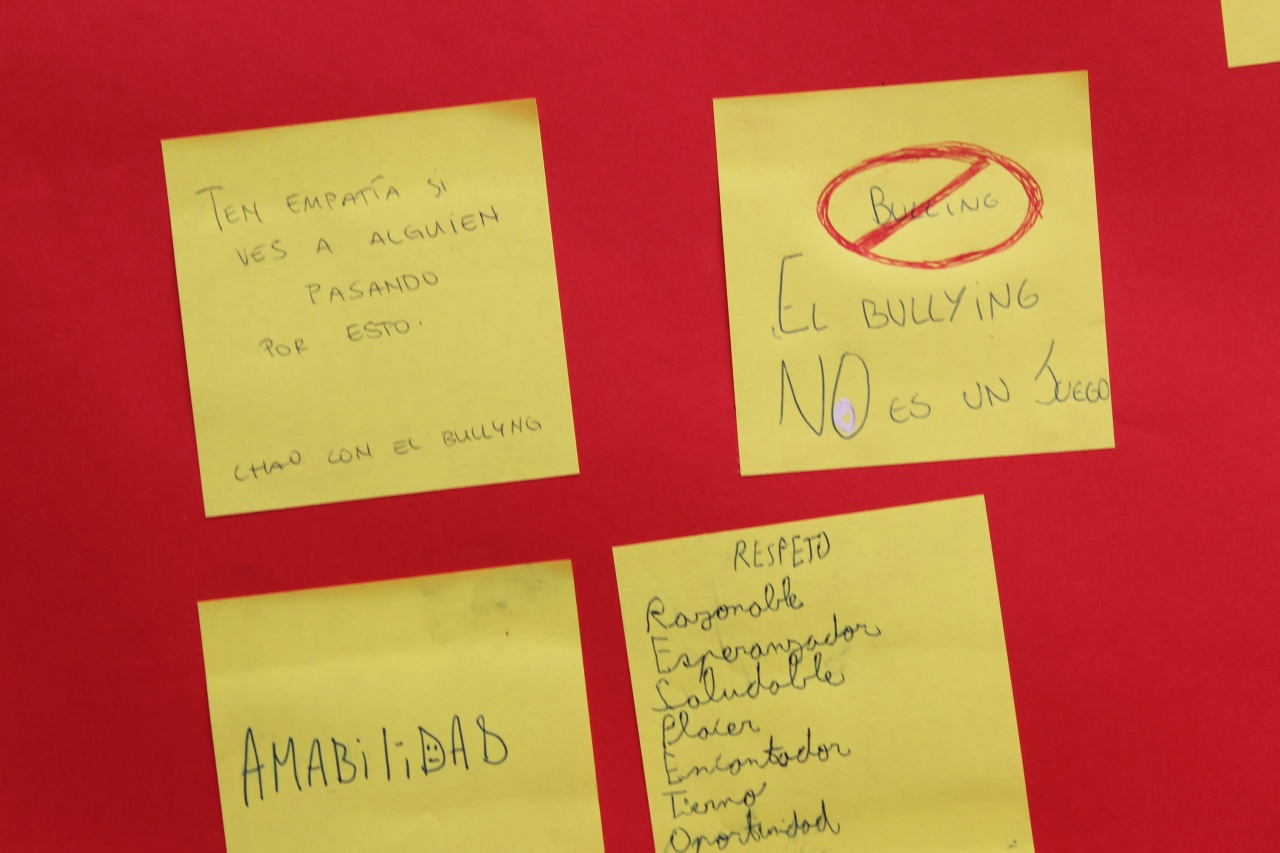 TEN EMPATÍA Si
VES A ALGUiEN
PASANDO
POR ESTO.
CHAO CON EL BULLYNG
BULLING
EL BULLYiNG
NO ES UN JUEGO
AMABiliDAD
RESPETO
Razonable
Esperanzador
Saludable
Placer
Encantador
Tierno
Oportunidad